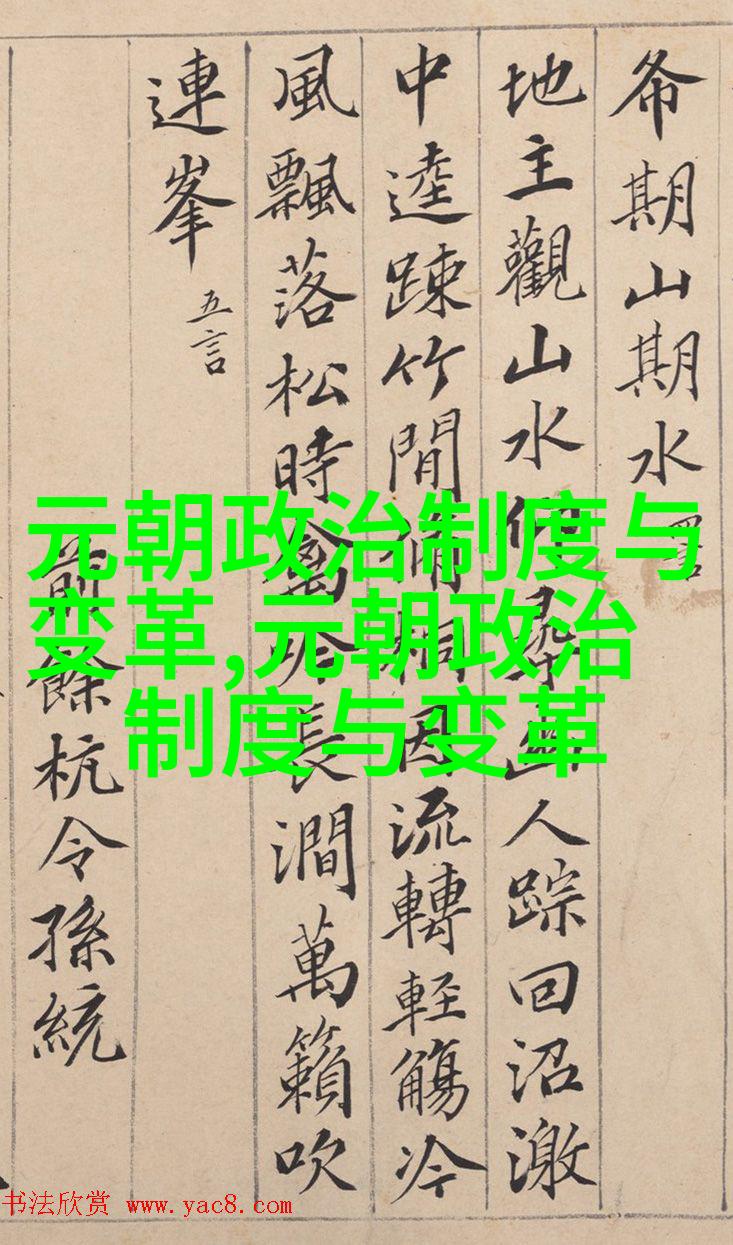 希期山期水
地主觀山水仰尋幽人踪回沼激
中逵踈竹間脩桐因流轉輕觴冷
風飄落松時禽吟長澗萬籟吹
連峯 五言
前餘杭令孫統
元朝政治制度与
变革,元朝政治
制度与变革
书法欣赏 www.yac8.com